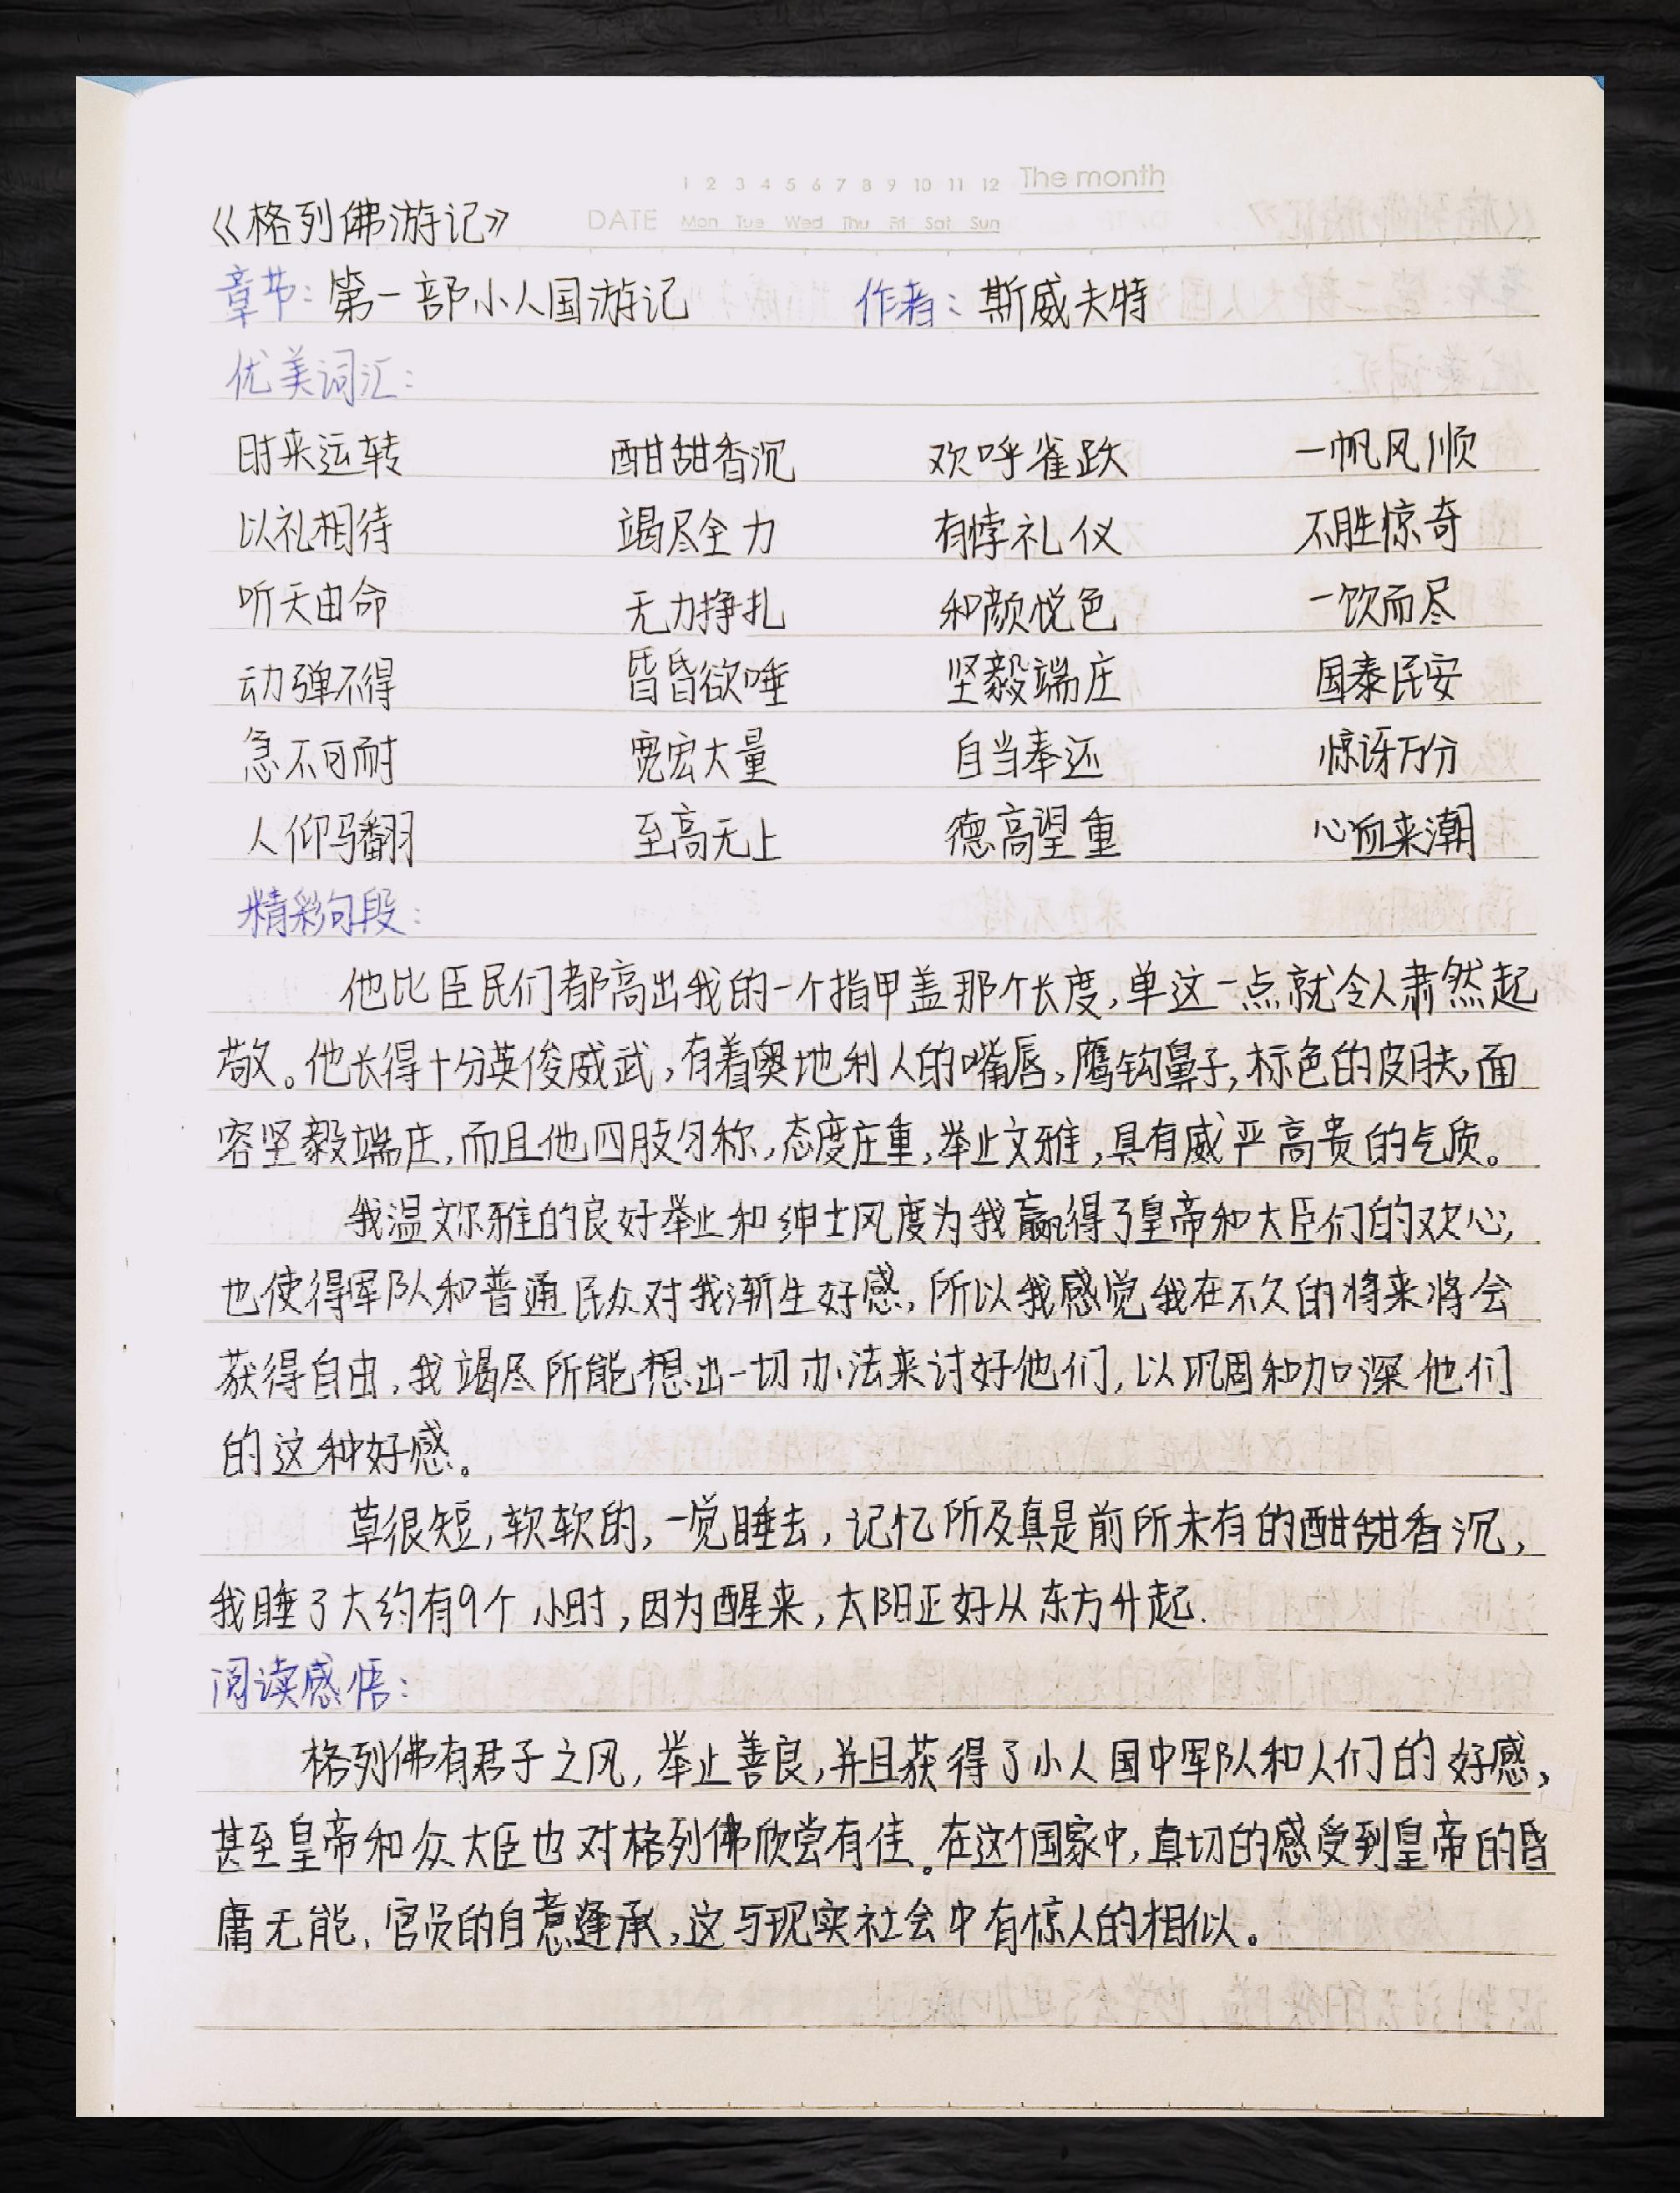 1 2 3 4 5 6 7 8 9 10 11 12 The month
《格列佛游记》 DATE Mon Tue Wed Thu Fri Sat Sun
章节：第一部小人国游记 作者：斯威夫特
优美词汇：
时来运转 酣甜香沉 欢呼雀跃 一帆风顺
以礼相待 竭尽全力 有悖礼仪 不胜惊奇
听天由命 无力挣扎 和颜悦色 一饮而尽
动弹不得 昏昏欲睡 坚毅端庄 国泰民安
急不可耐 宽宏大量 自当奉还 惊讶万分
人仰马翻 至高无上 德高望重 心血来潮
精彩句段：
他比臣民们都高出我的一个指甲盖那个长度，单这一点就令人肃然起
敬。他长得十分英俊威武，有着奥地利人的嘴唇，鹰钩鼻子，标色的皮肤，面
容坚毅端庄，而且他四肢匀称，态度庄重，举止文雅，具有威严高贵的气质。
我温文尔雅的良好举止和绅士风度为我赢得了皇帝和大臣们的欢心，
也使得军队和普通民众对我渐生好感，所以我感觉我在不久的将来将会
获得自由，我竭尽所能想出一切办法来讨好他们，以巩固和加深他们
的这种好感。
草很短，软软的，一觉睡去，记忆所及真是前所未有的酣甜香沉，
我睡了大约有9个小时，因为醒来，太阳正好从东方升起.
阅读感悟：
格列佛有君子之风，举止善良，并且获得了小人国中军队和人们的好感，
甚至皇帝和众大臣也对格列佛欣尝有佳。在这个国家中，真切的感受到皇帝的昏
庸无能、官员的自意逢承，这与现实社会中有惊人的相似。